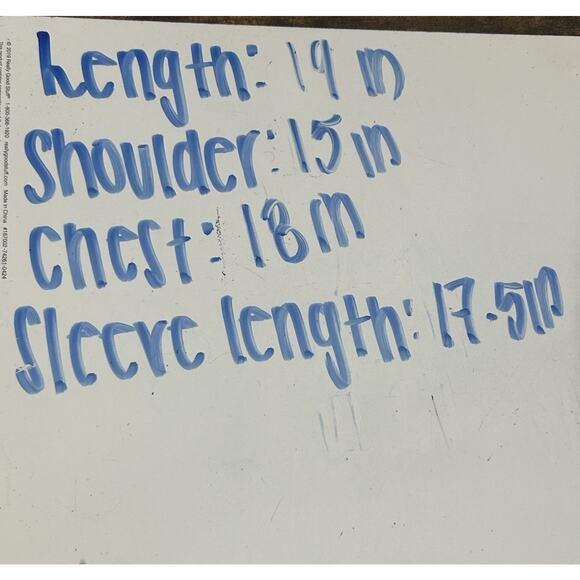 Length: 19 in
Shoulder: 15 in
Chest: 18 in
Sleeve length: 17.5 in
© 2019 Really Good Stuff® 1-800-366-1920 reallygoodstuff.com Made in China #167002-74261-0424